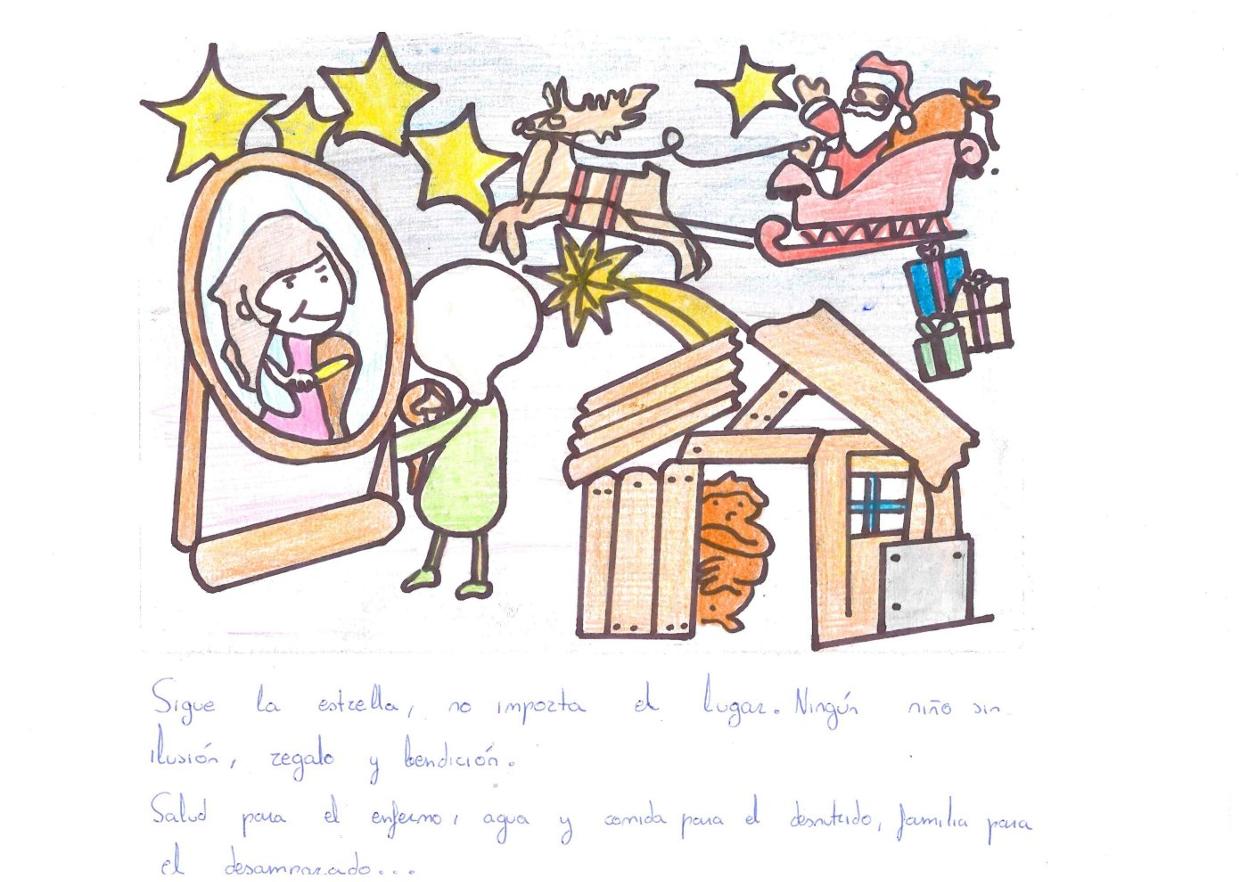 Sigue la estrella, no importa el lugar. Ningún niño sin
ilusión, regalo y bendición.
Salud para el enfermo, agua y comida para el desnutrido, familia para
el desamparado...